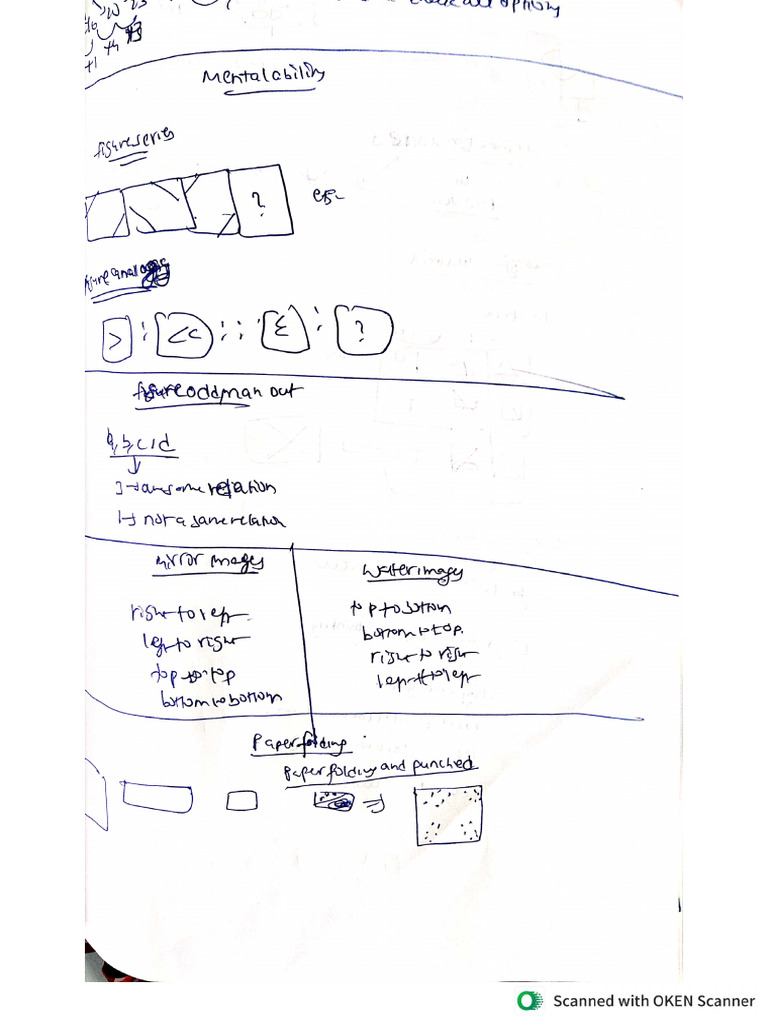 20 23
+1 +4
all options
Mentalability
figure series
?
figure analog
> : << :: Σ : ?
figure oddman out
a, b, c, d
3→ are same relation
1→ not a same relation
mirror images
right to left
left to right
top to top
bottom to bottom
water images
top to bottom
bottom to top.
right to right
left to left
Paper folding
paper folding and punched
Scanned with OKEN Scanner